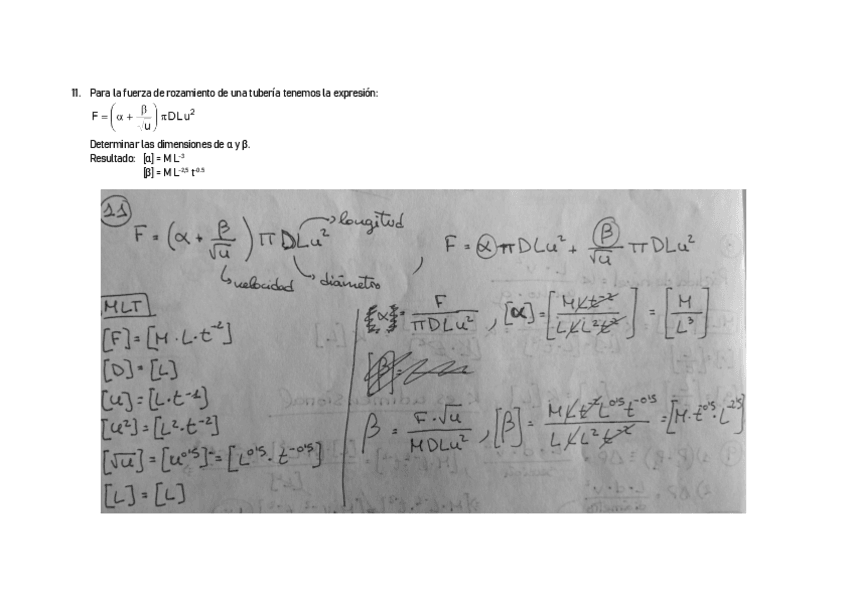 11. Para la fuerza de rozamiento de una tubería tenemos la expresión:
F = (α + β/√u) πDLu²
Determinar las dimensiones de α y β.
Resultado: [α] = M L⁻³
[β] = M L⁻²·⁵ t⁻⁰·⁵
11
F = (α + β/√u) π D L u² → longitud
↳ velocidad ↳ diámetro , F = α π D L u² + β/√u π D L u²
MLT
[F] = [M · L · t⁻²]
[D] = [L]
[u] = [L · t⁻¹]
[u²] = [L² · t⁻²]
[√u] = [u⁰'⁵] = [L⁰'⁵ · t⁻⁰'⁵]
[L] = [L]
α = F/(π D L u²) , [α] = [M L t⁻²/(L L L² t⁻²)] = [M/L³]
β = F · √u/(M D L u²) , [β] = M L t⁻² L⁰'⁵ t⁻⁰'⁵/(L L L² t⁻²) = [M · t⁻⁰'⁵ · L⁻²'⁵]